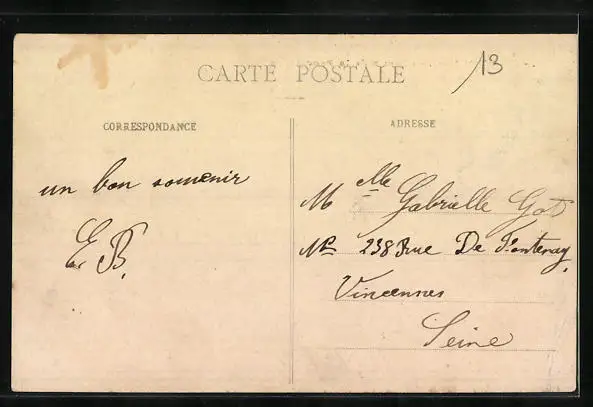 13
CARTE POSTALE
CORRESPONDANCE
ADRESSE
un bon souvenir
E. B.
M elle Gabrielle Got
No 238 Rue De Fontenay,
Vincennes
Seine